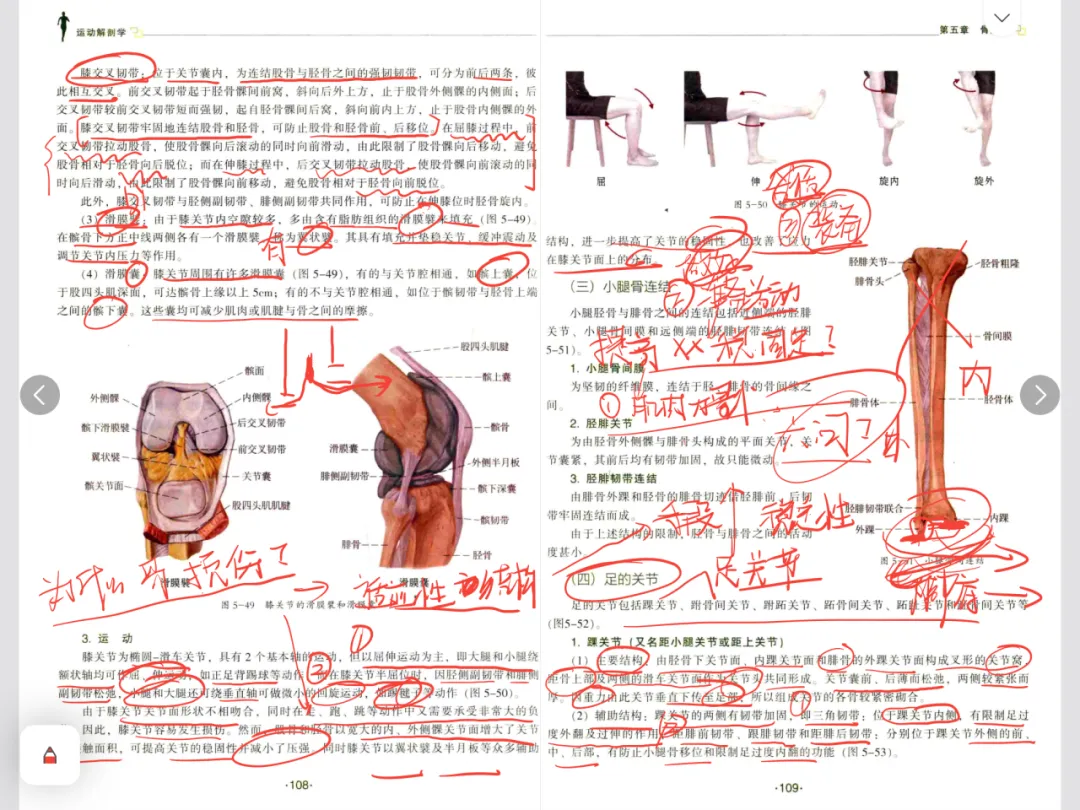 运动解剖学
膝交叉韧带：位于关节囊内，为连结股骨与胫骨之间的强韧韧带，可分为前后两条，彼
此相互交叉。前交叉韧带起于胫骨髁间前窝，斜向后外上方，止于股骨外侧髁的内侧面；后
交叉韧带较前交叉韧带短而强韧，起自胫骨髁间后窝，斜向前内上方，止于股骨内侧髁的外
面。膝交叉韧带牢固地连结股骨和胫骨，可防止股骨和胫骨前、后移位。在屈膝过程中，前
交叉韧带拉动股骨，使股骨髁向后滚动的同时向前滑动，由此限制了股骨髁向后移动，避免
股骨相对于胫骨向后脱位；而在伸膝过程中，后交叉韧带拉动股骨，使股骨髁向前滚动的同
时向后滑动，由此限制了股骨髁向前移动，避免股骨相对于胫骨向前脱位。
此外，膝交叉韧带与胫侧副韧带、腓侧副韧带共同作用，可防止在伸膝位时胫骨旋内。
（3）滑膜襞：由于膝关节内空隙较多，多由含有脂肪组织的滑膜襞来填充（图 5-49）。
在髌骨下方正中线两侧各有一个滑膜襞，称为翼状襞。其具有填充并垫稳关节、缓冲震动及
调节关节内压力等作用。
（4）滑膜囊：膝关节周围有许多滑膜囊（图 5-49），有的与关节腔相通，如髌上囊，位
于股四头肌深面，可达髌骨上缘以上 5cm；有的不与关节腔相通，如位于髌韧带与胫骨上端
之间的髌下囊。这些囊均可减少肌肉或肌腱与骨之间的摩擦。
有
髌面
外侧髁
内侧髁
髌下滑膜襞
后交叉韧带
前交叉韧带
翼状襞
关节囊
髌关节面
股四头肌肌腱
滑膜襞
股四头肌腱
髌上囊
髌骨
滑膜囊
外侧半月板
腓侧副韧带
髌下深囊
髌韧带
腓骨
胫骨
滑膜囊
为什么 易损伤？
图 5-49 膝关节的滑膜襞和滑膜囊
3. 运 动
膝关节为椭圆-滑车关节，具有 2 个基本轴的运动，但以屈伸运动为主，即大腿和小腿绕
额状轴均可作屈、伸运动，如正足背踢球等动作
在膝关节半屈位时，因胫侧副韧带和腓侧
副韧带松弛，小腿和大腿还可绕垂直轴可做微小的回旋运动，如踢毽子等动作（图 5-50）。
由于膝关节关节面形状不相吻合，同时在走、跑、跳等动作中又需要承受非常大的负
因此，膝关节容易发生损伤。然而，股骨和胫骨以宽大的内、外侧髁关节面增大了关节
接触面积，可提高关节的稳固性并减小了压强。同时膝关节以翼状襞及半月板等众多辅助
·108·
第五章 骨
屈
伸
旋内
旋外
图 5-50 膝关节的运动
结构，进一步提高了关节的稳固性，也改善了应力
在膝关节面上的分布。
（三）小腿骨连结
小腿胫骨与腓骨之间的连结包括近侧端的胫腓
关节、小腿骨间膜和远侧端的胫腓韧带连结（图
5-51）。
提高 xx 稳固定？
1. 小腿骨间膜
为坚韧的纤维膜，连结于胫、腓骨的骨间缘之
间。
① 肌肉力量
2. 胫腓关节
为由胫骨外侧髁与腓骨头构成的平面关节，关
节囊紧，其前后均有韧带加固，故只能微动。
3. 胫腓韧带连结
由腓骨外踝和胫骨的腓骨切迹借胫腓前、后韧
带牢固连结而成。
由于上述结构的限制，胫骨与腓骨之间的活动
度甚小。
手段 稳定性
胫腓关节
腓骨头
胫骨粗隆
骨间膜
内
腓骨体
胫骨体
胫腓韧带联合
外踝
内踝
图 5-51 小腿骨连结
（四）足的关节
足关节
足的关节包括踝关节、跗骨间关节、跗跖关节、跖骨间关节、跖趾关节和趾骨间关节等
（图5-52）。
1. 踝关节（又名距小腿关节或距上关节）
（1）主要结构：由胫骨下关节面、内踝关节面和腓骨的外踝关节面构成叉形的关节窝，
距骨上部及两侧的滑车关节面作为关节头共同形成。关节囊前、后薄而松弛，两侧较紧张而
厚。因重力由此关节垂直下传至足部，所以组成关节的各骨较紧密砌合。
（2）辅助结构：踝关节的两侧有韧带加固，即三角韧带：位于踝关节内侧，有限制足过
度外翻及过伸的作用；距腓前韧带、跟腓韧带和距腓后韧带：分别位于踝关节外侧的前、
中、后部，有防止小腿骨移位和限制足过度内翻的功能（图 5-53）。
·109·